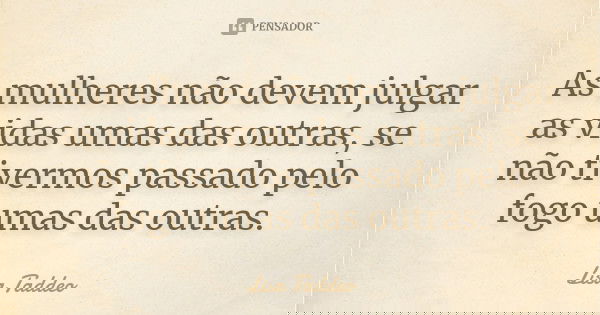 PENSADOR
As mulheres não devem julgar
as vidas umas das outras, se
não tivermos passado pelo
fogo umas das outras.
Lisa Taddeo